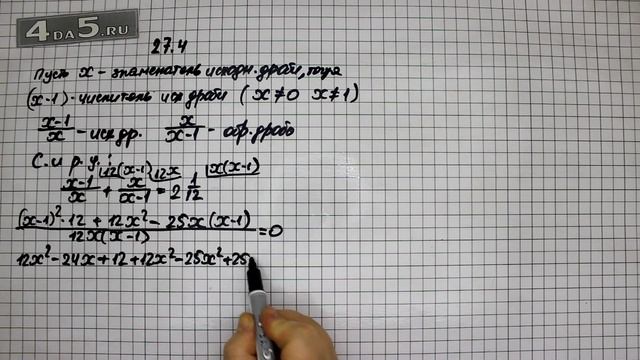 4DA5.RU
27.4
Пусть x - знаменатель исходн. дроби, тогда
(x-1) - числитель исх дроби ( x≠0 x≠1)
x-1/x - исх др. x/x-1 - обр. дробь
С. и р. у.:
12(x-1) 12x x(x-1)
x-1/x + x/x-1 = 2 1/12
(x-1)²·12 + 12x² - 25x(x-1)/12x(x-1) = 0
12x² - 24x + 12 + 12x² - 25x² + 25